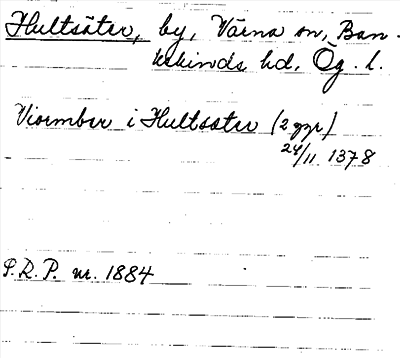 Hultsäter, by, Värna sn, Ban-
kekinds hd, Ög. l.
Viormber i Hultsæter (2 ggr)
24/11 1378
S.R.P. nr. 1884